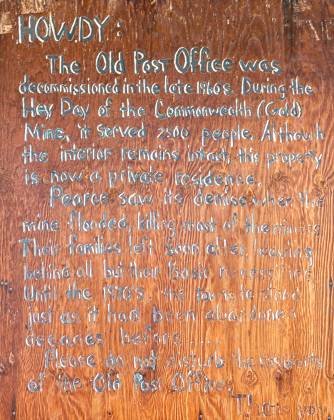 HOWDY:
The Old Post Office was
decommissioned in the late 1960s. During the
Hey Day of the Commonwealth (Gold)
Mine, it served 2500 people. Although
the interior remains intact, this property
is now a private residence.
Pearce saw its demise when the
mine flooded, killing most of the miners.
Their families left soon after, leaving
behind all but their basic necessities.
Until the 1970's the town stood
just as it had been abandoned
decades before....
Please do not disturb the residents
of the Old Post Office.